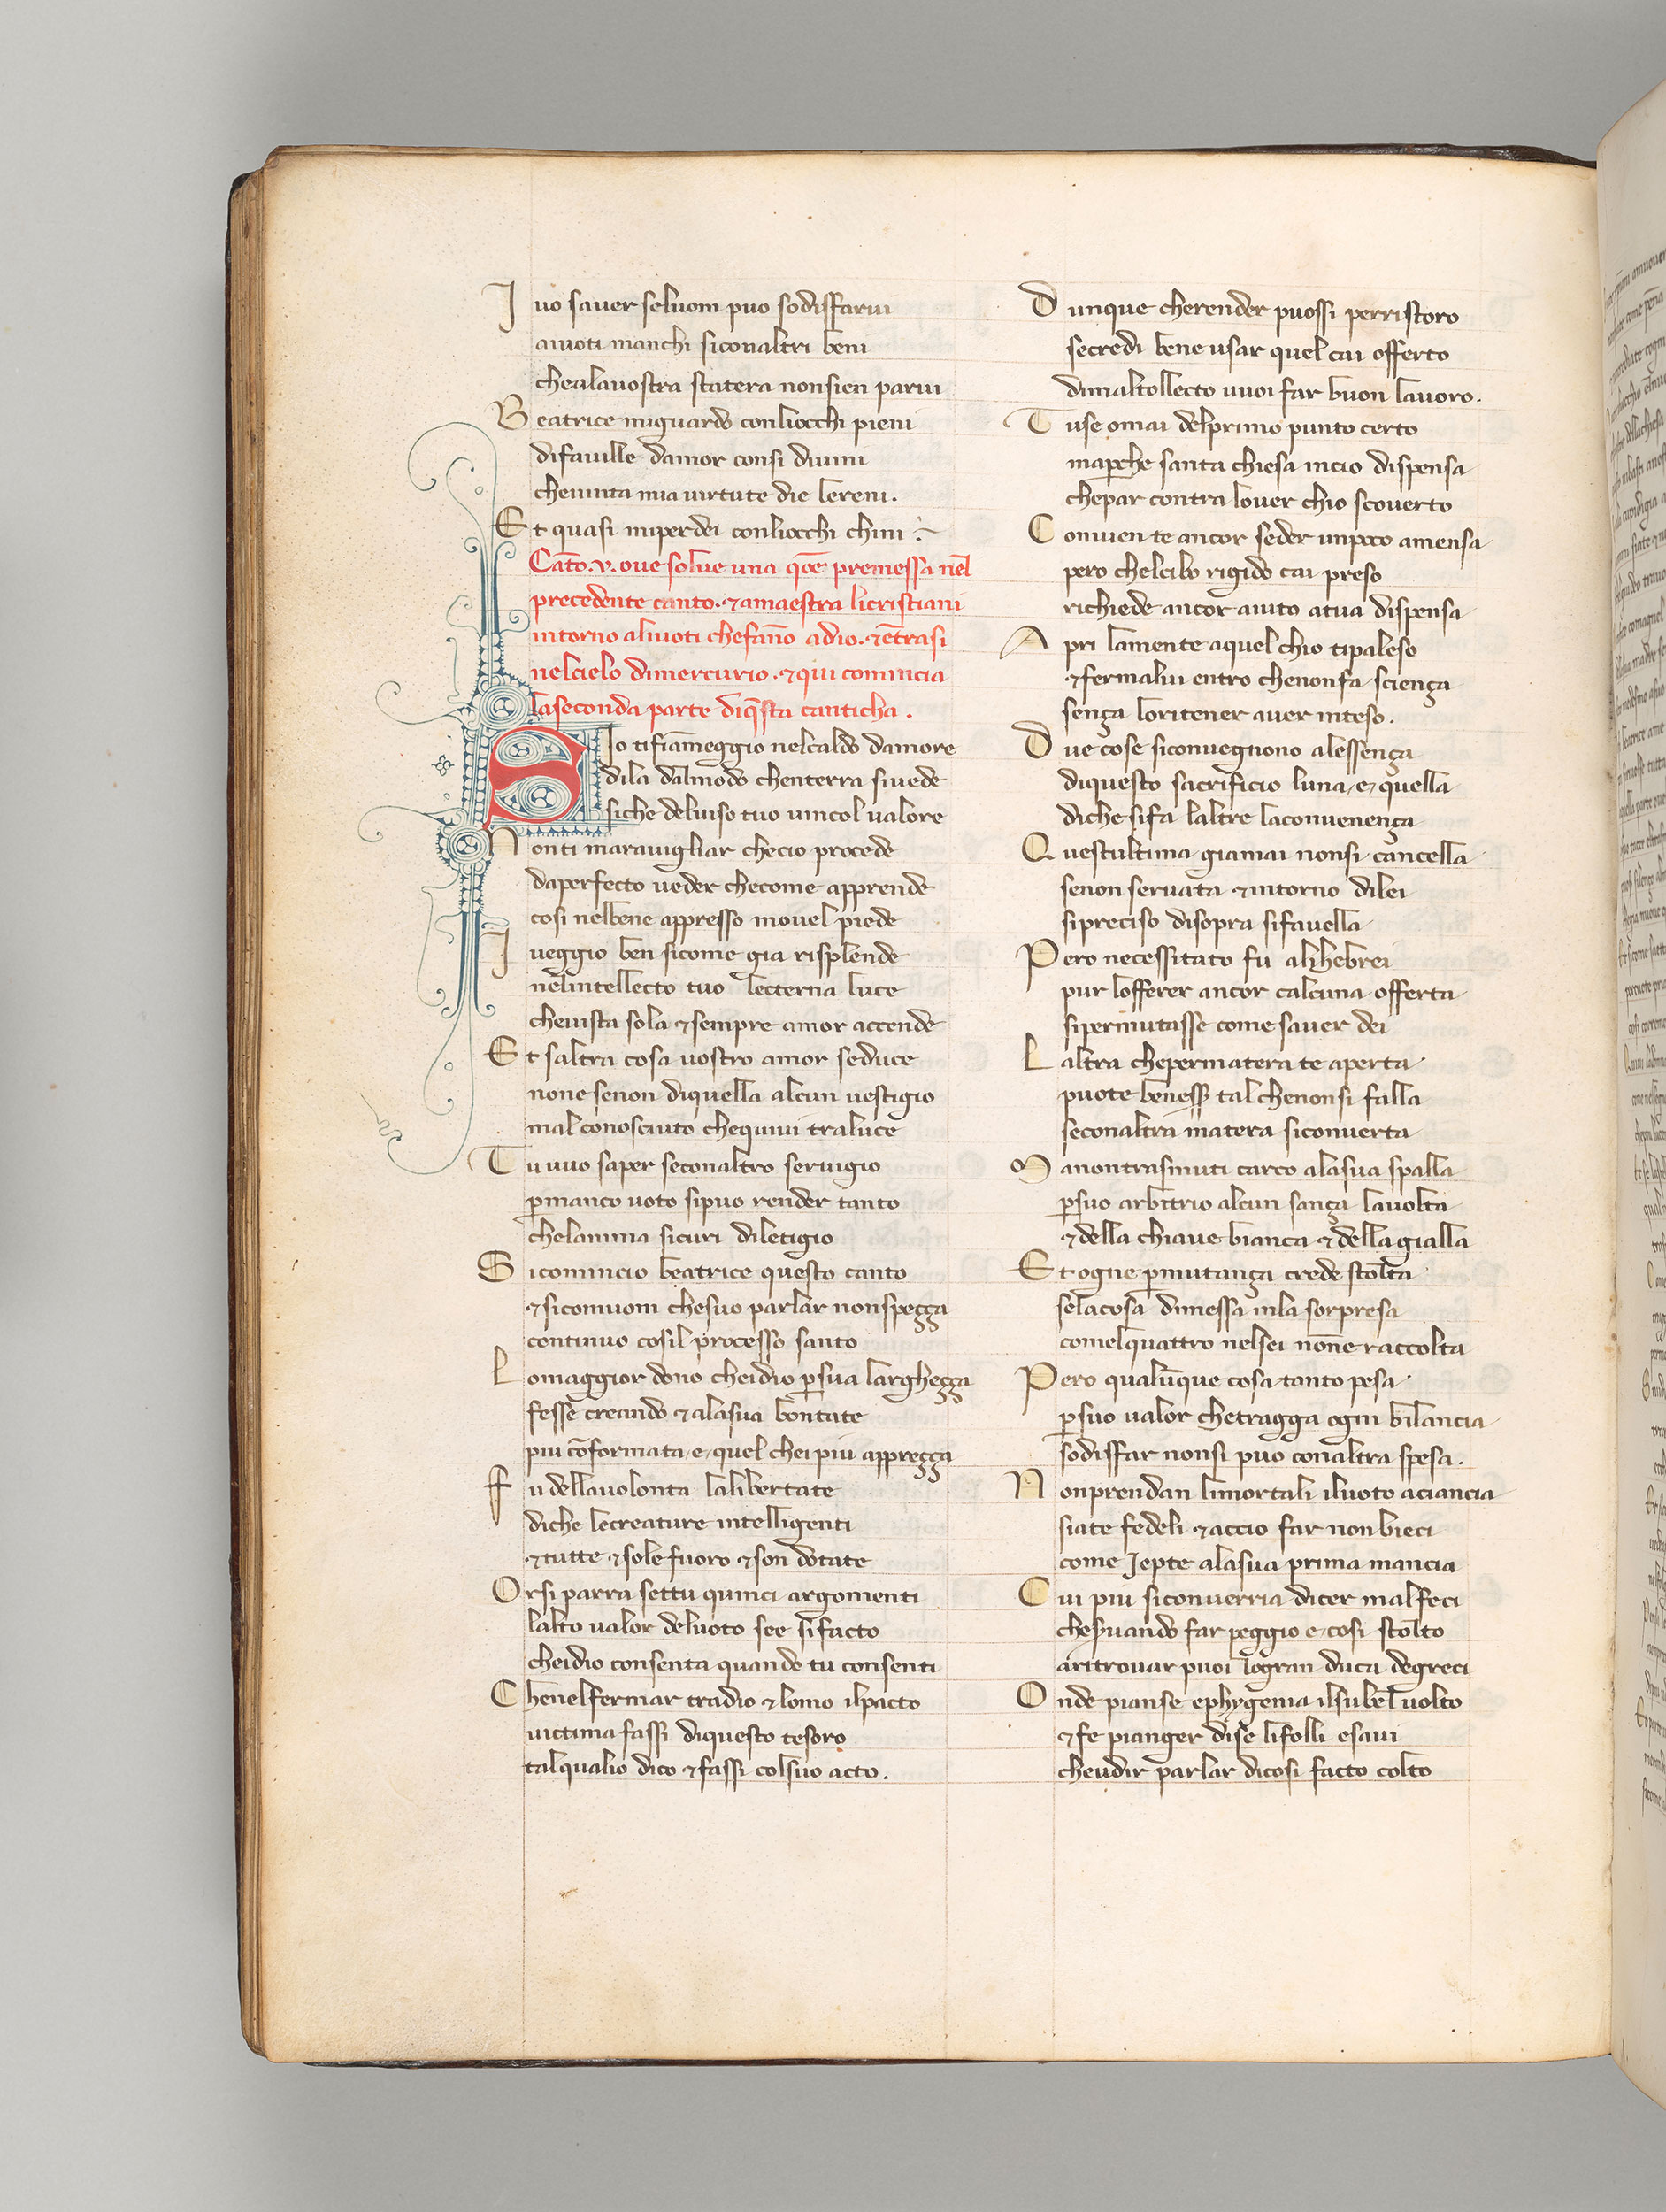 I uo sauer seluom puo sodisfarui
aiuoti manchi siconaltri beni
chealauostra statera nonsien parui
B eatrice miguardo conliocchi pieni
difauille damor cosi diuini
cheuinta mia uirtute die lereni.
E t quasi miperdei conliocchi chini
Canto .v. oue solue una q̄oe premessa nel
precedente canto. ⁊ amaestra licristiani
intorno aliuoti chefan̄o adio. ⁊ ētrasi
nelcielo dimercurio. ⁊ qui comincia
laseconda parte diq̄sta canticha.
S Io tifiam̄eggio nelcaldo damore
dila dalmodo chenterra siuede
siche deluiso tuo uincol ualore
N onti marauigliar checio procede
daperfecto ueder checome apprende
cosi nelbene appresso mouel piede
I ueggio ben sicome gia risplende
nelintellecto tuo lecterna luce
cheuista sola ⁊ sempre amor accende
E t saltra cosa uostro amor seduce
none senon diquella alcun uestigio
mal conosciuto chequiui traluce
T u uuo saper seconaltro seruigio
p̄manco uoto sipuo render tanto
chelanima sicuri diletigio
S icomincio beatrice questo canto
⁊ sicomuom chesuo parlar nonspeçça
continuo cosil processo santo
L omaggior dono cheidio p̄sua largheçça
fesse creando ⁊ alasua bontate
piu cōformata, e, quel chei piu appreçça
F u dellauolonta lalibertate
diche lecreature intelligenti
⁊ tutte ⁊ sole fuoro ⁊ son dotate
O rsi parra settu quinci argomenti
lalto ualor deluoto see sifacto
cheidio consenta quando tu consenti
C henelfermar tradio ⁊ lomo ilpacto
uictima fassi diquesto tesoro
talqualio dico ⁊ fassi colsuo acto.
D unque cherender puossi perristoro
secredi bene usar quel cai offerto
dimaltollecto uuoi far buon lauoro.
T use omai delprimo punto certo
map̄che santa chiesa incio dispensa
chepar contra louer chio scouerto
C onuien te ancor seder unpoco amensa
pero chelcibo rigido cai preso
richiede ancor aiuto atua dispensa
A pri lamente aquel chio tipaleso
⁊ fermalui entro chenonfa sciença
sença loritener auer inteso.
D ue cose siconuegnono alessença
diquesto sacrificio luna, e, quella
diche sifa laltre laconuenença
Q uestultima giamai nonsi cancella
senon seruata ⁊ intorno dilei
sipreciso disopra sifauella
P ero necessitato fu alihebrei
pur lofferer ancor calcuna offerta
sipermutasse come sauer dei
L altra chepermatera te aperta
puote beness̄ tal chenonsi falla
seconaltra matera siconuerta
M anontrasmuti carco alasua spalla
p̄suo arbitrio alcun sança lauolta
⁊ della chiaue bianca ⁊ dellagialla
E t ogne p̄mutança crede stolta
selacosa dimessa inla sorpresa
comelquattro nelsei non̄e raccolta
P ero qualūque cosa tanto pesa
p̄suo ualor chetragga ogni bilancia
sodisfar nonsi puo conaltra spesa.
N onprendan limortali iluoto aciancia
siate fedeli ⁊ accio far non bieci
come Iepte alasua prima mancia
C ui piu siconuerria dicer malfeci
cheseruando far peggio e, cosi stolto
aritrouar puoi logran duca degreci
O nde pianse ephygenia ilsubel uolto
⁊ fe pianger dise lifolli esaui
cheudir parlar dicosi facto colto